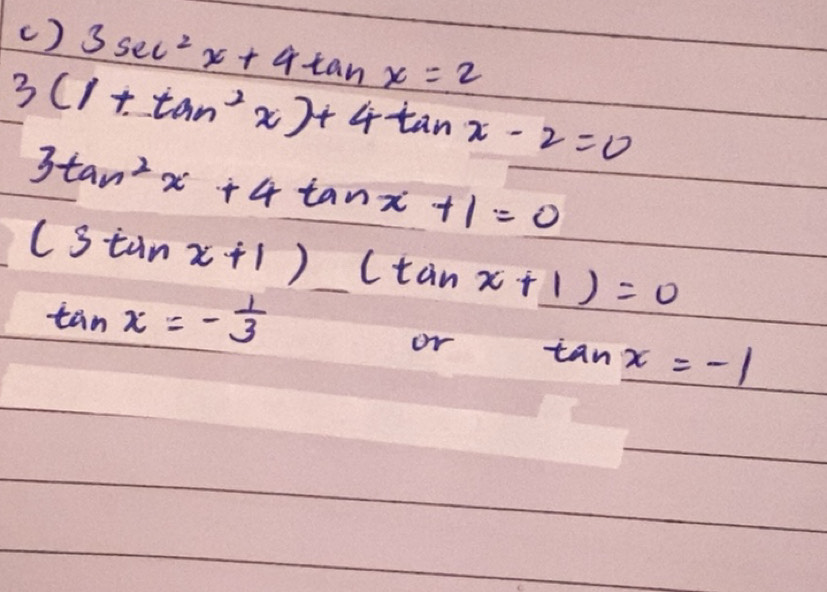 c) 3 sec² x + 4 tan x = 2
3 (1 + tan² x) + 4 tan x - 2 = 0
3 tan² x + 4 tan x + 1 = 0
(3 tan x + 1) (tan x + 1) = 0
tan x = - 1/3 or tan x = - 1